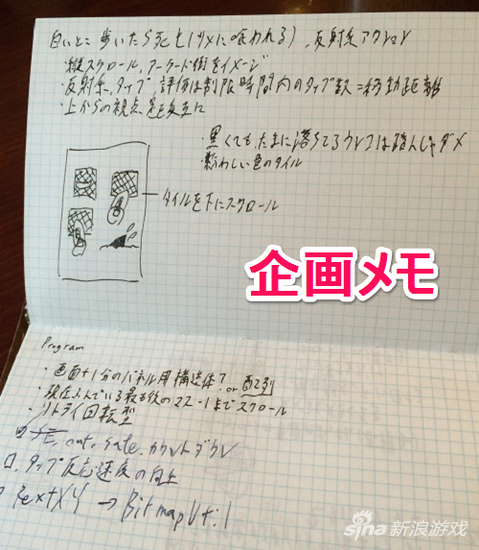 白いとこ歩いたら死亡(サメに喰われる)、反射系アクション
・縦スクロール、アーケード街をイメージ
・反射系、タップ、評価は制限時間内のタップ数=移動距離
・上からの視点、足を交互に
・黒くてもたまに落ちてるウンコは踏んじゃダメ
・紛わしい色のタイル
タイルを下にスクロール
企画メモ
Program
・画面+1分のパネル用構造体? or 配列
・現在ふんでいる最も後のマス-1までスクロール
・リトライ回転型
SE, out, safe, カウントダウン
ロ. タップ反応速度の向上
TextXY → BitmapUtil
sina 新浪游戏